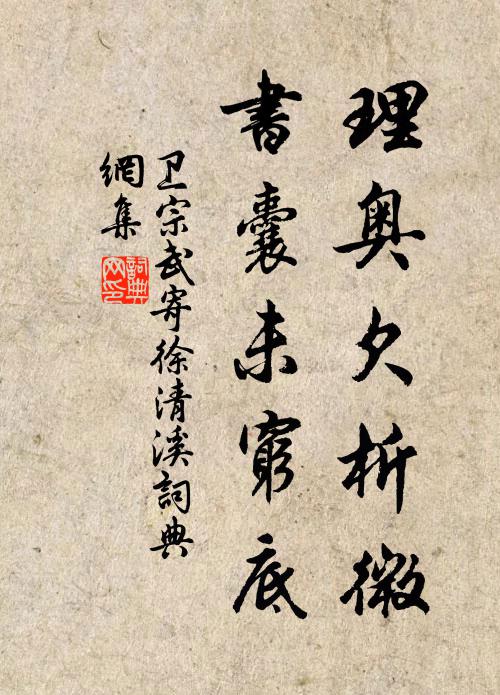 理奥欠析微
書囊未窮底
卫宗武寄徐清溪詞典
網集
詞典网印